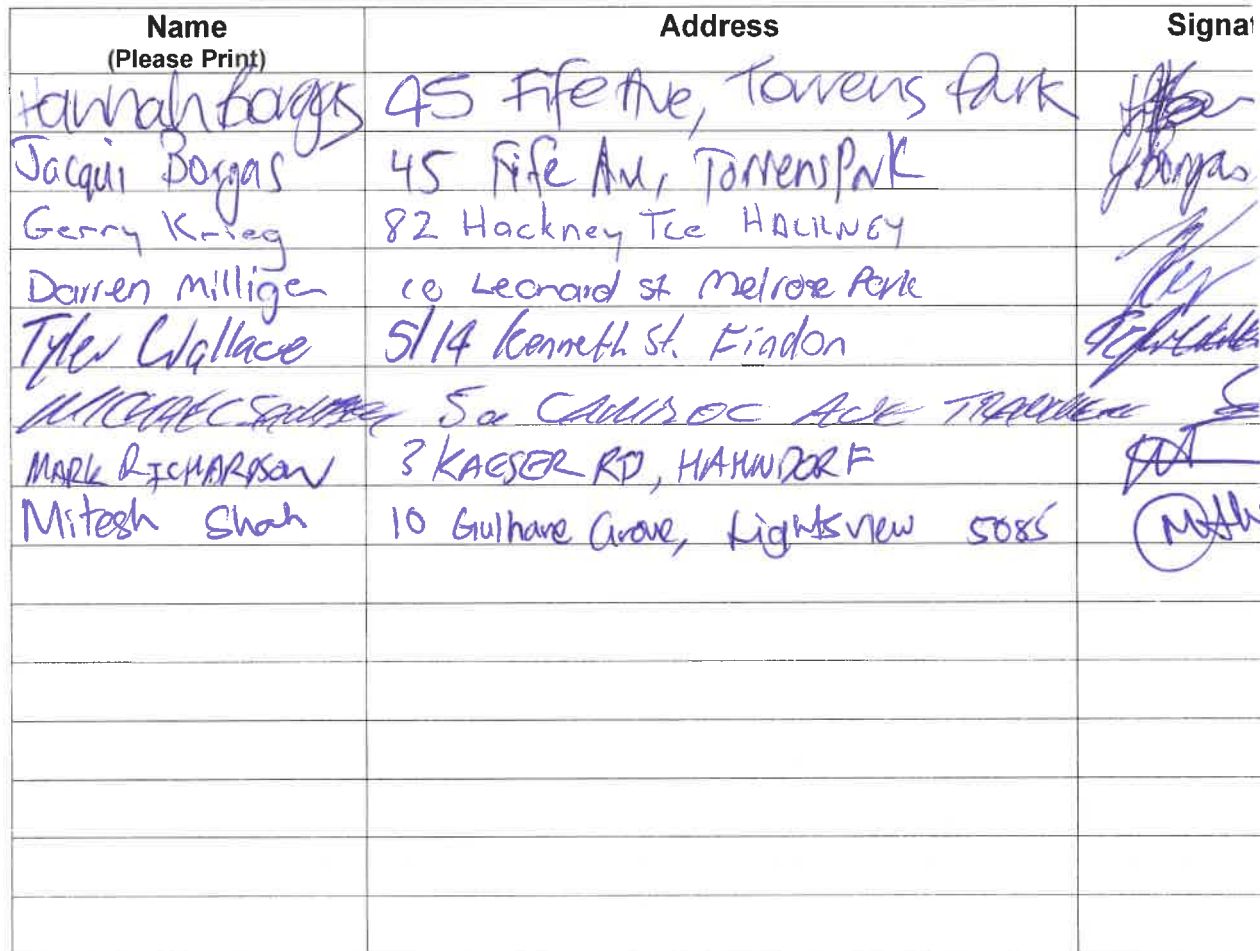 Name Address Signat
(Please Print)
Hannah Borgas 45 Fife Ave, Torrens Park
Jacqui Borgas 45 Fife Av, Torrens Park JBorgas
Gerry Krieg 82 Hackney Tce HACKNEY
Darren Milligan Leonard st Melrose Park
Tyler Wallace 5/14 Kenneth St. Findon
MICHAEL 5a AVE
MARK RICHARDSON 3 KAESER RD, HAHNDORF
Mitesh Shah 10 Gulhane Grove, Lightsview 5085